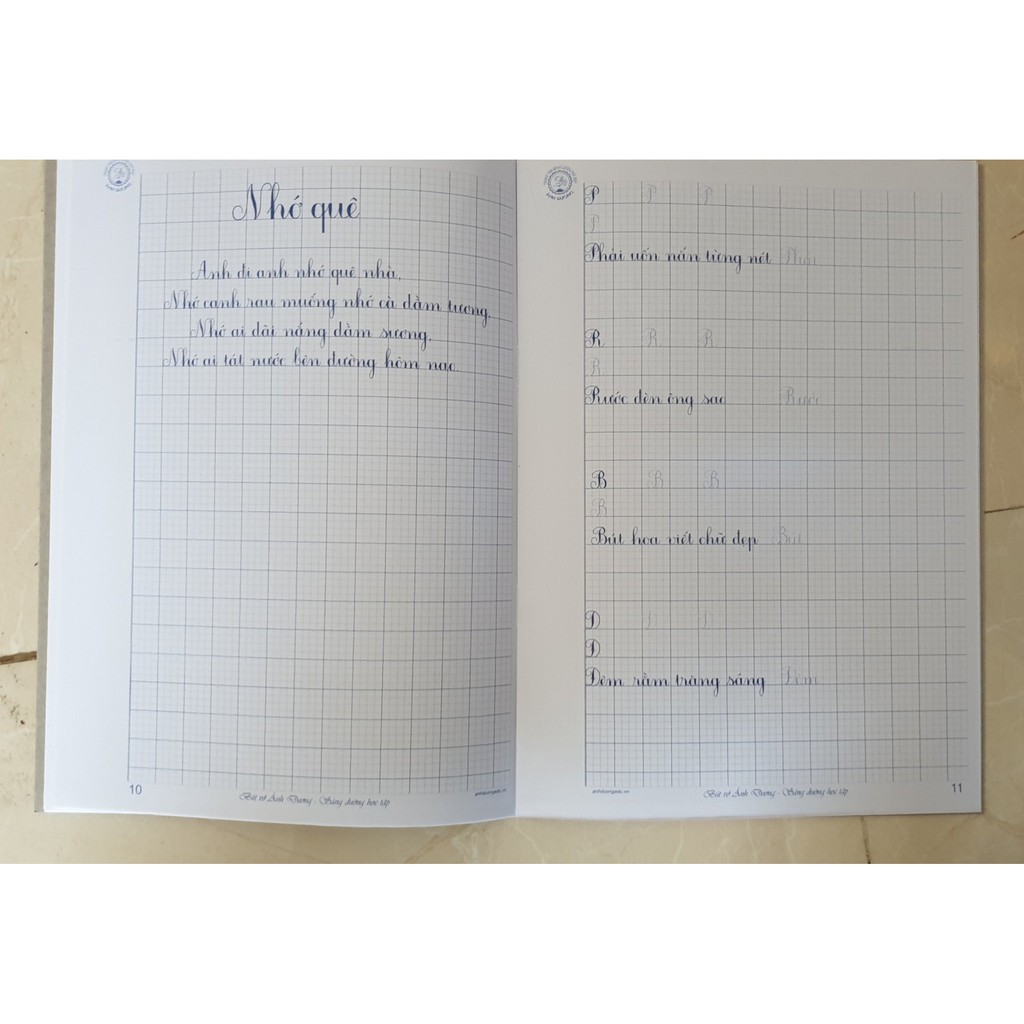 Nhớ quê
Anh đi anh nhớ quê nhà,
Nhớ canh rau muống nhớ cà dầm tương.
Nhớ ai dãi nắng dầm sương,
Nhớ ai tát nước bên đường hôm nao.
10
Bút vở Ánh Dương - Sáng đường học tập
P P P
P
Phải uốn nắn từng nét Phải
R R R
R
Rước đèn ông sao Rước
B B B
B
Bút hoa viết chữ đẹp Bút
Đ Đ Đ
Đ
Đêm rằm trăng sáng Đêm
Bút vở Ánh Dương - Sáng đường học tập
11